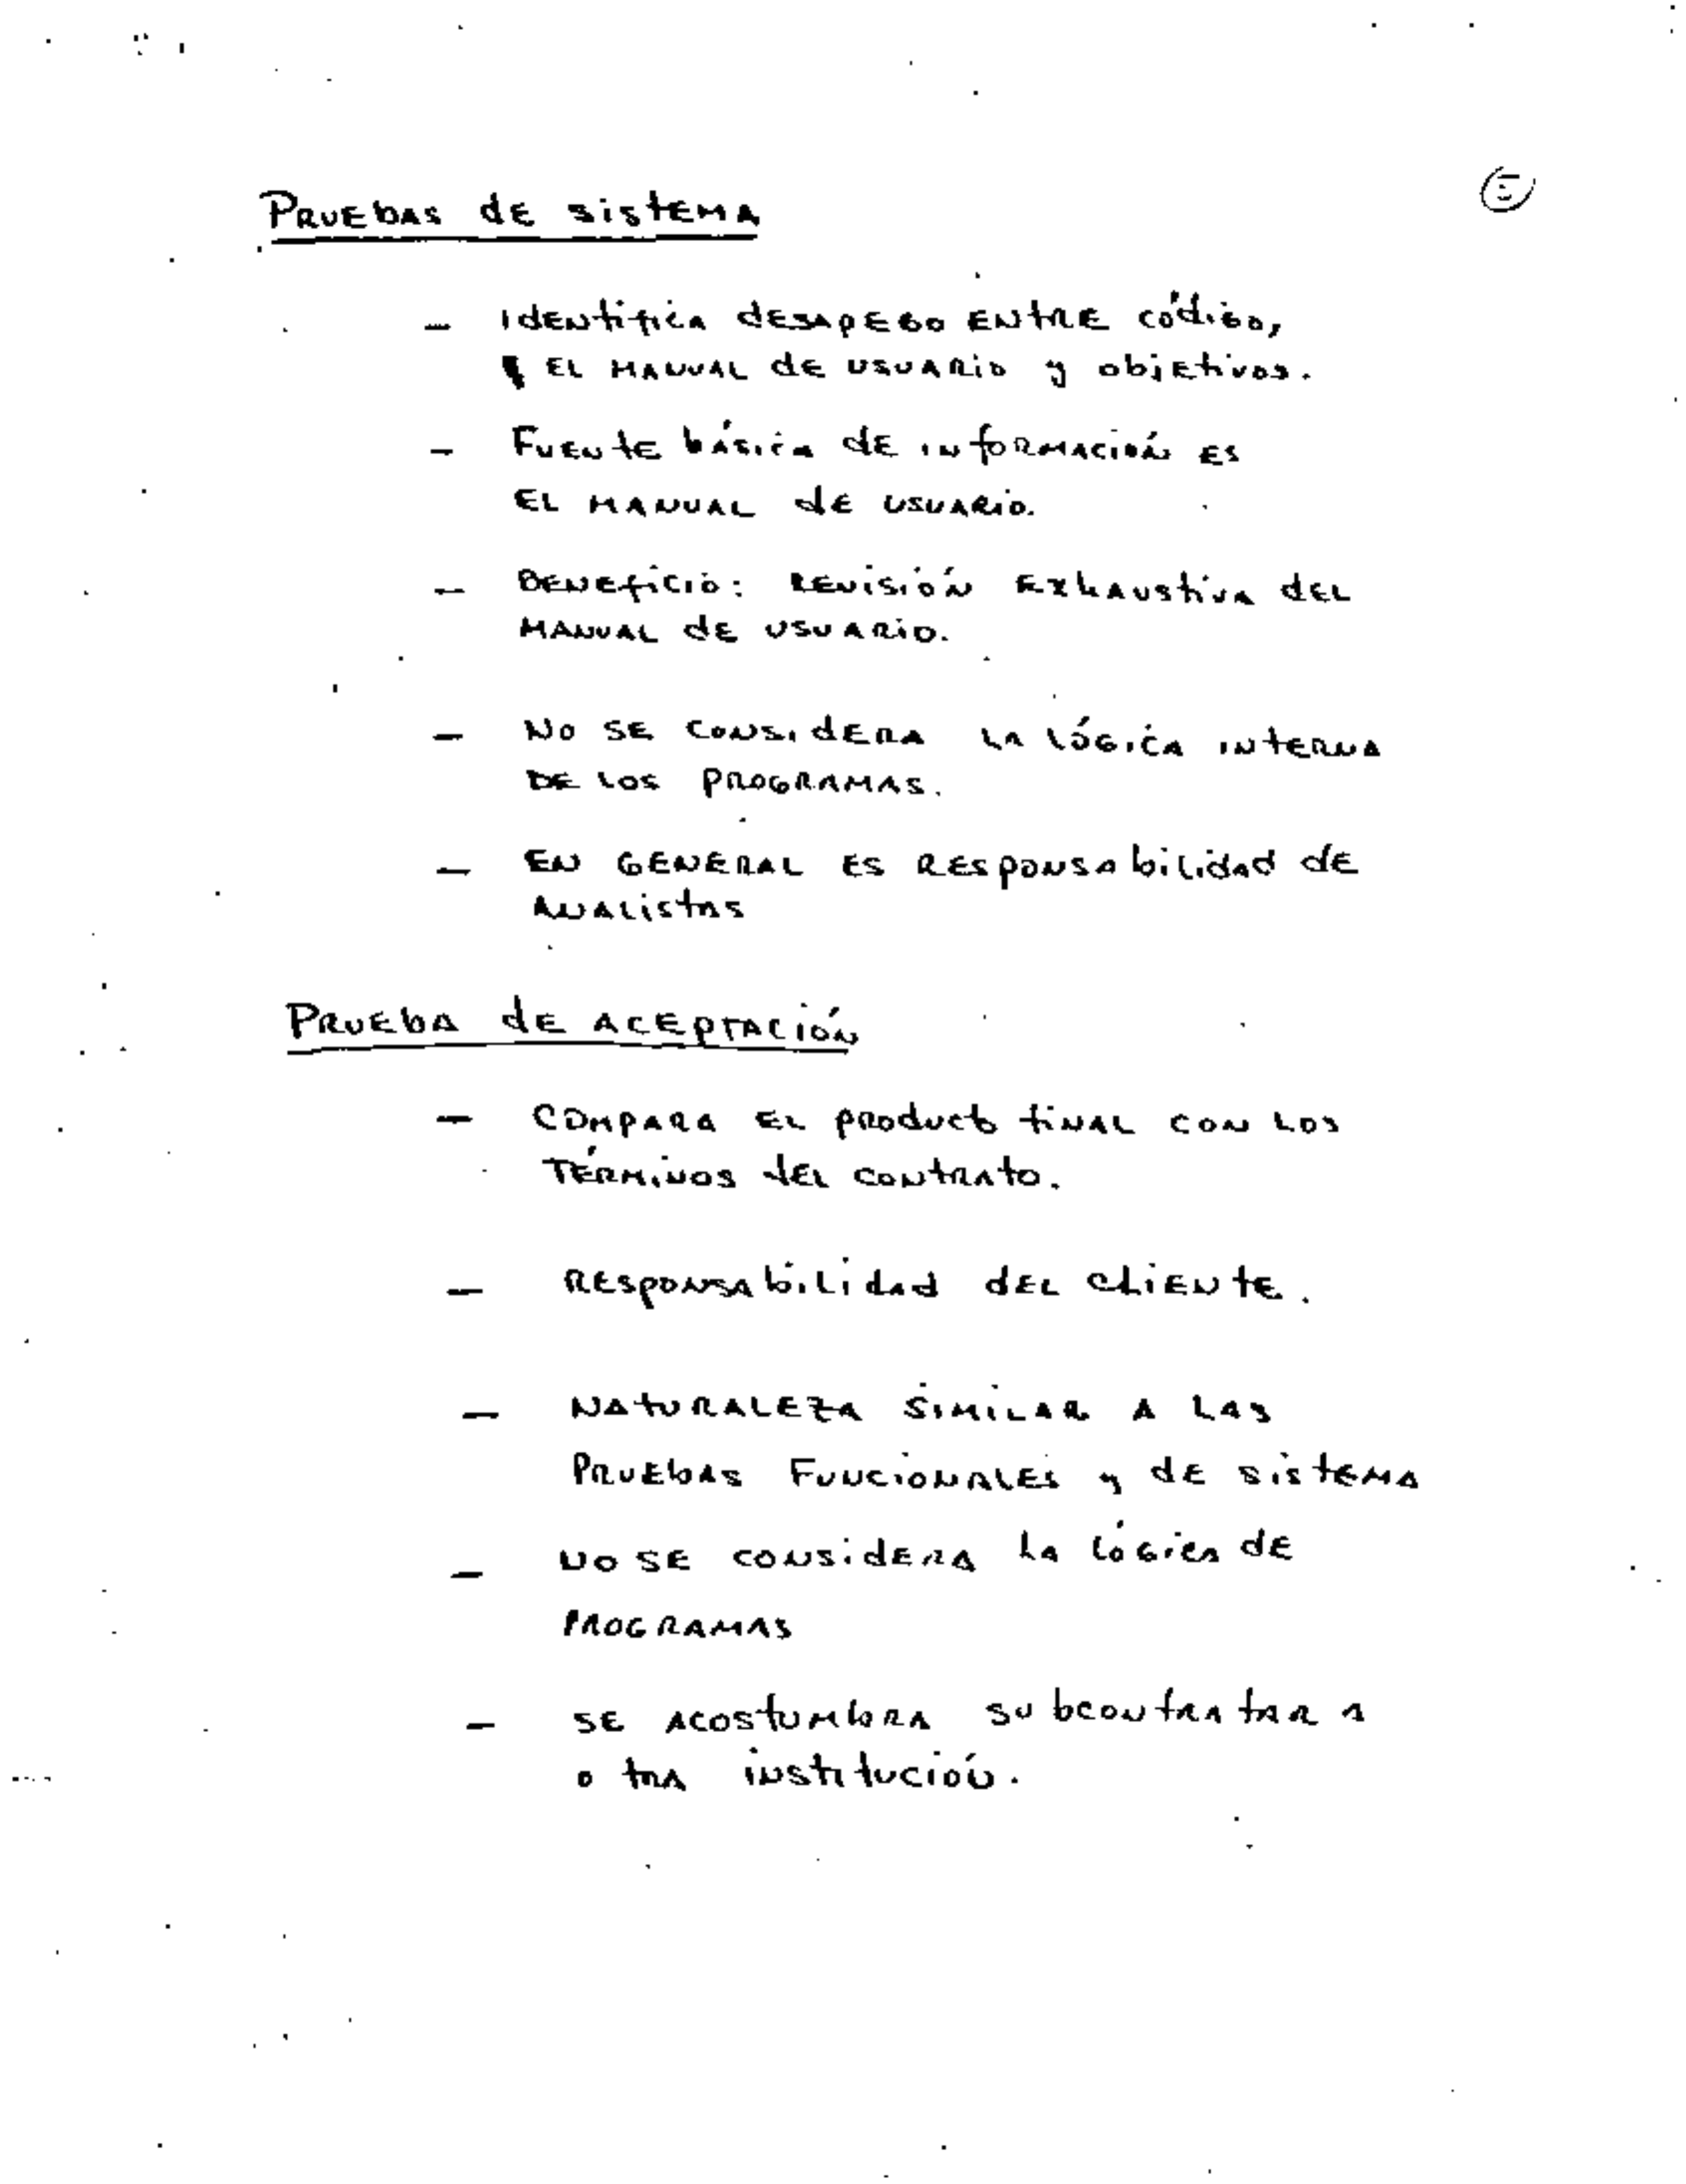 PRUEBAS DE SISTEMA
- IDENTIFICA DESAPEGO ENTRE CÓDIGO,
EL MANUAL DE USUARIO y objetivos.
- FUENTE básica DE INFORMACIÓN ES
EL MANUAL DE USUARIO.
- BENEFICIO: REVISIÓN EXHAUSTIVA DEL
MANUAL DE USUARIO.
- NO SE CONSIDERA LA LÓGICA INTERNA
DE LOS PROGRAMAS.
- EN GENERAL ES RESPONSABILIDAD DE
ANALISTAS
PRUEBA DE ACEPTACIÓN
- COMPARA EL PRODUCTO FINAL CON LOS
TÉRMINOS DEL CONTRATO.
- RESPONSABILIDAD DEL CLIENTE.
- NATURALEZA SIMILAR A LAS
PRUEBAS FUNCIONALES y DE SISTEMA
- NO SE CONSIDERA LA LÓGICA DE
PROGRAMAS
- SE ACOSTUMBRA SUBCONTRATAR A
OTRA INSTITUCIÓN.